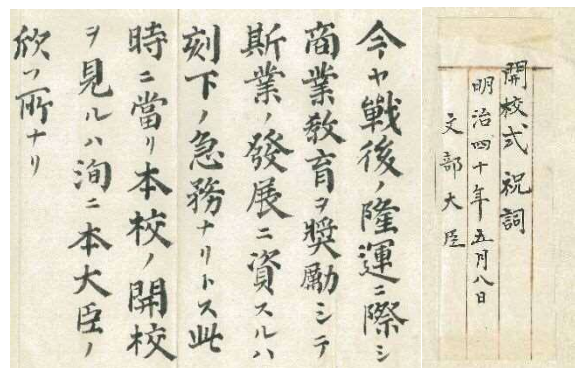 開校式祝詞
明治四十年五月八日
文部大臣
今ヤ戦後ノ隆運ニ際シ
商業教育ヲ奨励シテ
斯業ノ發展ニ資スルハ
刻下ノ急務ナリトス此
時ニ當リ本校ノ開校
ヲ見ルハ洵ニ本大臣ノ
欣フ所ナリ